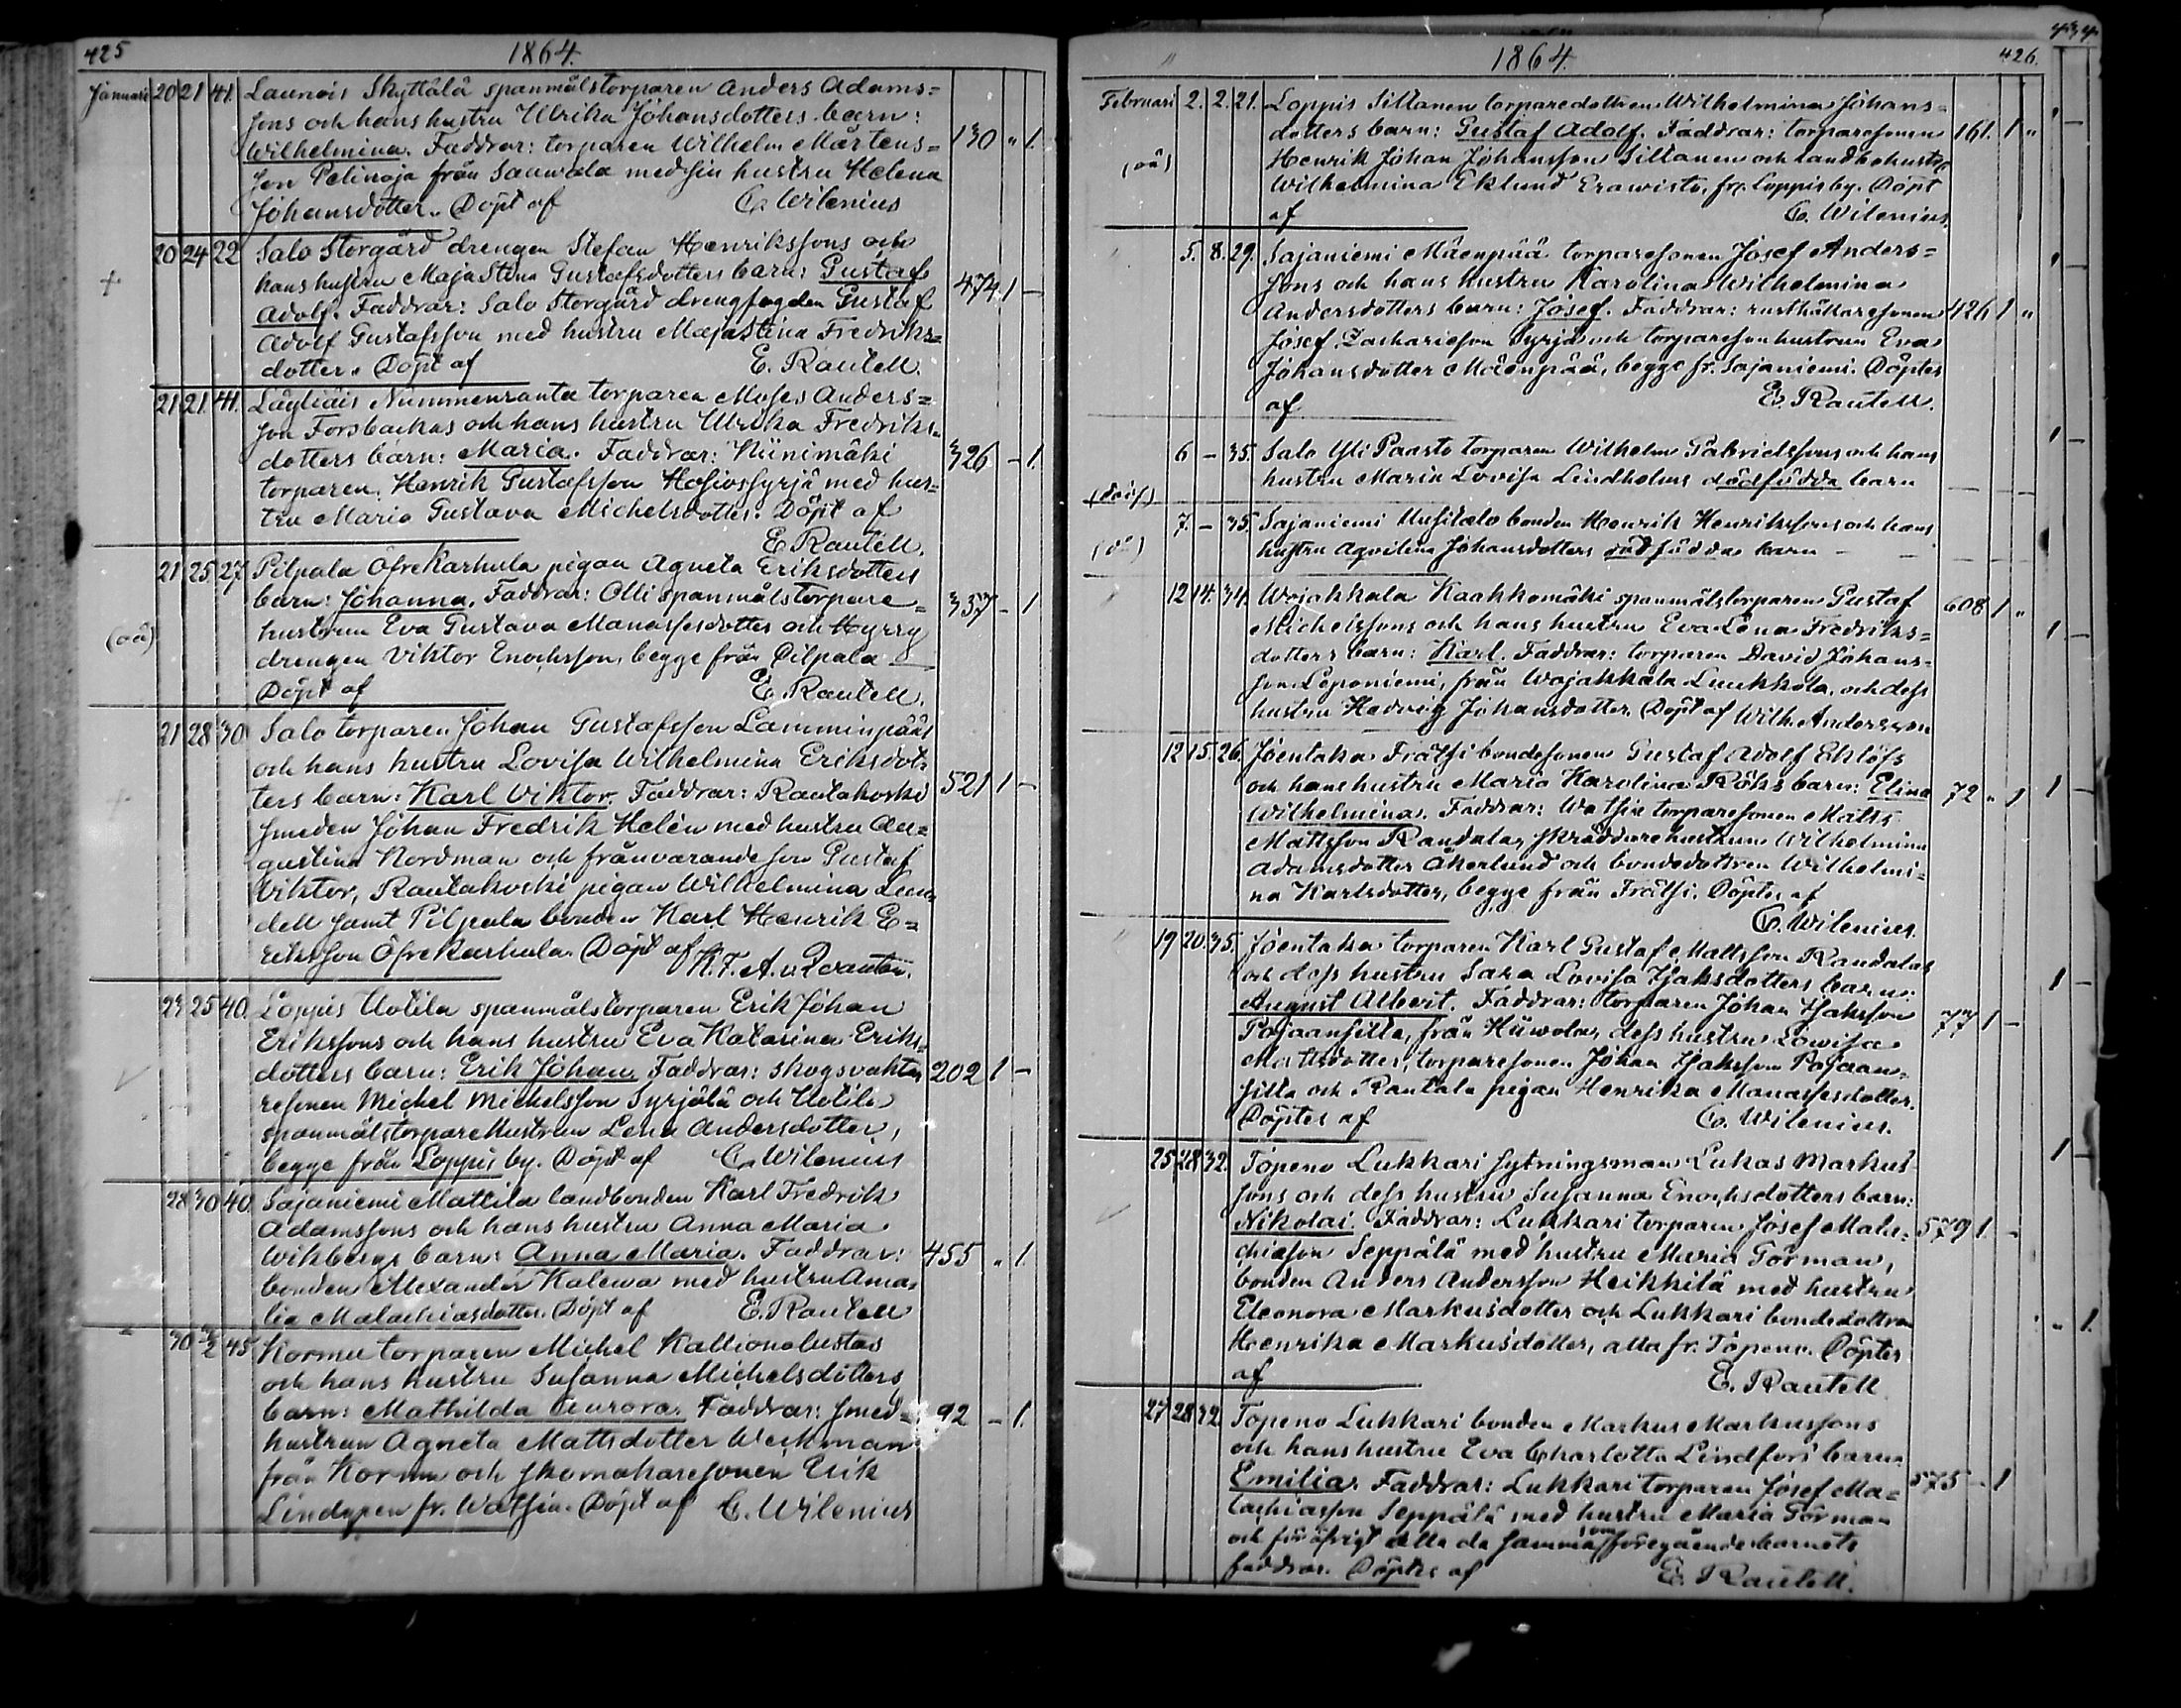 425
1864.
Januari 20 21 41. Launois Skyttälä spanmålstorparen Anders Adams=
sons och hans hustru Ulrika Johansdotters barn:
Wilhelmina. Faddrar: torparen Wilhelm Mårtens= 130 „ 1.
son Pelinoja från Sauwala med sin hustru Helena
Johansdotter. Döpt af C. Wilenius
20 24 22 Salo Storgård drengen Stefan Henrikssons och
+ hans hustru Maja Stina Gustafsdotters barn: Gustaf 474 1 –
Adolf. Faddrar: Salo Storgård drengfogden Gustaf
Adolf Gustafsson med hustru Maja Stina Fredriks=
dotter. Döpt af E. Rautell.
21 21 41. Läyliäis Nummenranta torparen Moses Anders=
son Forsbackas och hans hustru Ulrika Fredriks=
dotters barn: Maria. Faddrar: Niinimäki 326 – 1.
torparen Henrik Gustafsson Hosiossyrjä med hus=
tru Maria Gustava Michelsdotter. Döpt af
E. Rautell.
21 25 27 Pilpala Öfre Karhula pigan Agneta Eriksdotters
barn: Johanna. Faddrar: Olli spanmålstorpare= 337 – 1
(oä) hustrun Eva Gustava Manassesdotter och Hyrry
drengen Viktor Enochsson, begge från Pilpala
Döpt af E. Rautell.
21 28 30 Salo torparen Johan Gustafsson Lamminpääs
och hans hustru Lovisa Wilhelmina Eriksdot=
+ ters barn: Karl Viktor. Faddrar: Rautakoski 521 1 –
smeden Johan Fredrik Helén med hustru Au=
gustina Nordman och frånvarande son Gustaf
Viktor, Rautakoski pigan Wilhelmina Lin=
dell samt Pilpala bonden Karl Henrik E=
riksson Öfre Karhula. Döpt af K. F. A. v. Qvanten.
24 25 40. Loppis Uotila spanmålstorparen Erik Johan
Erikssons och hans hustru Eva Katarina Eriks=
dotters barn: Erik Johan. Faddrar: skogsvakta= 202 1 –
resonen Michel Michelsson Syrjälä och Uotila
spanmålstorparehustrun Lena Andersdotter,
begge från Loppis by. Döpt af C. Wilenius
28 30 40. Sajaniemi Mattila landbonden Karl Fredrik
Adamssons och hans hustru Anna Maria
Wikbergs barn: Anna Maria. Faddrar: 455 „ 1.
bonden Alexander Kalewa med hustru Ama=
lia Malachiasdotter. Döpt af E. Rautell
30 3/2 45 Kormu torparen Michel Kallionalustas
och hans hustru Susanna Michelsdotters
barn: Mathilda Aurora. Faddrar: smed= 92 – 1.
hustrun Agneta Mattsdotter Weckman
från Kormu och skomakaresonen Erik
Lindgren fr. Watsia. Döpt af C. Wilenius
1864.
426.
Februari 2. 2. 21. Loppis Sillanen torparedottren Wilhelmina Johans=
dotters barn: Gustaf Adolf. Faddrar: torparesonen 161. 1 „
(oä) Henrik Johan Johansson Sillanen och landbohustr.
Wilhelmina Eklund Erawisto, fr. Loppis by. Döpt
af C. Wilenius.
5. 8. 29. Sajaniemi Mäenpää torparesonen Josef Anders=
sons och hans hustru Karolina Wilhelmina
Andersdotters barn: Josef. Faddrar: rusthållaresonen 426 1 „
Josef Zachariesson Syrjä och torparesonhustrun Eva
Johansdotter Mäenpää, begge fr. Sajaniemi. Döptes
af E. Rautell.
6 – 35. Salo Yli Paasto torparen Wilhelm Gabrielssons och hans
hustru Maria Lovisa Lindholms dödfödda barn
7. – 35. Sajaniemi Uusitalo bonden Henrik Henrikssons och hans
hustru Agvilina Johansdotters dödfödda barn – –
12 14. 34. Wojakkala Kaakkomäki spanmålstorparen Gustaf 608 1 „
Michelssons och hans hustru Eva Lena Fredriks=
dotters barn: Karl. Faddrar: torparen David Johans=
son Leponiemi, från Wojakkala Luukkola, och dess
hustru Hedvig Johansdotter. Döpt af Wilh. Andersson
12 15. 26. Joentaka Frälsi bondesonen Gustaf Adolf Eklöfs
och hans hustru Maria Karolina Röks barn: Elina 72 „ 1
Wilhelmina. Faddrar: Watsia torparesonen Matts
Mattsson Randala, skräddarehustrun Wilhelmina
Adamsdotter Åkerlund och bondedottren Wilhelmi=
na Karlsdotter, begge från Frälsi. Döptes af
C. Wilenius.
19 20. 35. Joentaka torparen Karl Gustaf Mattsson Randalas
och dess hustru Sara Lovisa Isaksdotters barn:
August Albert. Faddrar: torparen Johan Isaksson 77 1 –
Pajaansilta, från Hüwola, dess hustru Lowisa
Mattsdotter, torparesonen Johan Isaksson Pajaan=
silta och Rantala pigan Henrika Manassesdotter.
Döptes af C. Wilenius.
25 28 32. Topeno Lukkari sytningsman Lukas Markus
sons och dess hustru Susanna Enochsdotters barn:
Nikolai. Faddrar: Lukkari torparen Josef Mala= 579 1. –
chiasson Seppälä med hustru Maria Törman,
bonden Anders Andersson Heikkilä med hustru
Eleonora Markusdotter och Lukkari bondedottren
Henrika Markusdotter, alla fr. Topeno. Döptes
af E. Rautell
27 28 32 Topeno Lukkari bonden Markus Markussons
och hans hustru Eva Charlotta Lindfors' barn
Emilia. Faddrar: Lukkari torparen Josef Ma= 575 – 1
lachiasson Seppälä med hustru Maria Törman
och för öfrigt alla de samma som föregående barnets
faddrar. Döptes af E. Rautell.